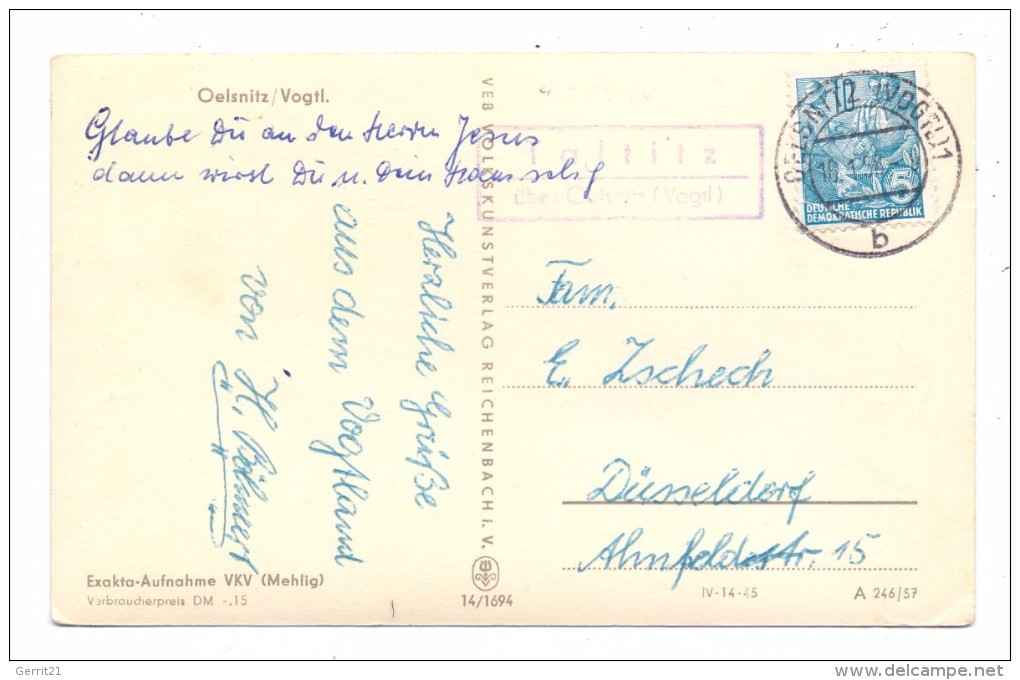 Oelsnitz/Vogtl.
Glaube Du an den Herrn Jesus
dann wirst Du u. Dein Haus selig
Herzliche Grüße
aus dem Vogtland
von H. Böhmert
Exakta-Aufnahme VKV (Mehlig)
Verbraucherpreis DM -,15
VEB VOLKSKUNSTVERLAG REICHENBACH i. V.
14/1694
über Oelsnitz (Vogtl)
OELSNITZ (VOGTL) 1
b
10
5
DEUTSCHE
DEMOKRATISCHE REPUBLIK
Fam.
E. Zschech
Düsseldorf
Ahnfeldstr. 15
IV-14-45
A 246/57
Gerrit21
http://www.delcampe.net